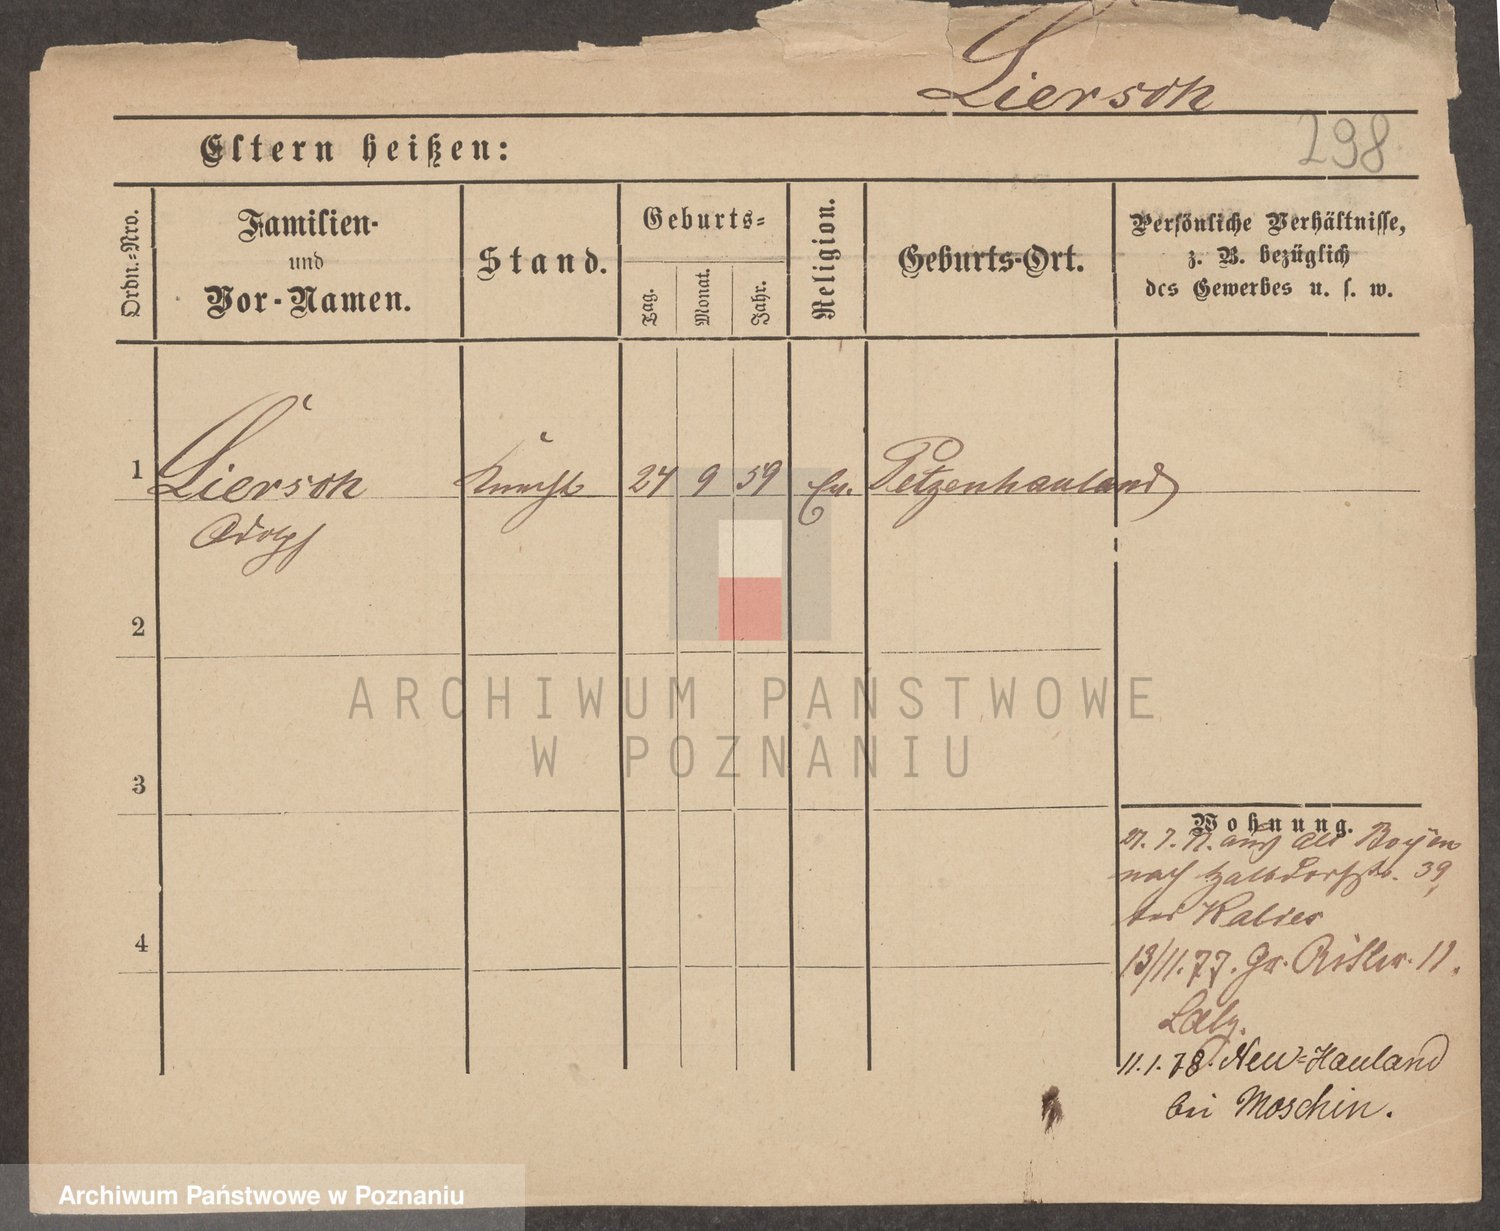 Liersch
298
Eltern heißen:
Ordn.-Nro.
Familien-
und
Vor-Namen.
Stand.
Geburts-
Tag.
Monat.
Jahr.
Religion.
Geburts-Ort.
Persönliche Verhältnisse,
z. B. bezüglich
des Gewerbes u. s. w.
1 Liersch Knecht 24 9 59 Ev. Petzenhauland
Adolph
2
3
4
Wohnung.
nach Halbdorfstr. 39,
bei
13/11.77. Gr. Ritter. 11.
11.1.78. Neu-Hauland
bei Moschin.
ARCHIWUM PAŃSTWOWE
W POZNANIU
Archiwum Państwowe w Poznaniu